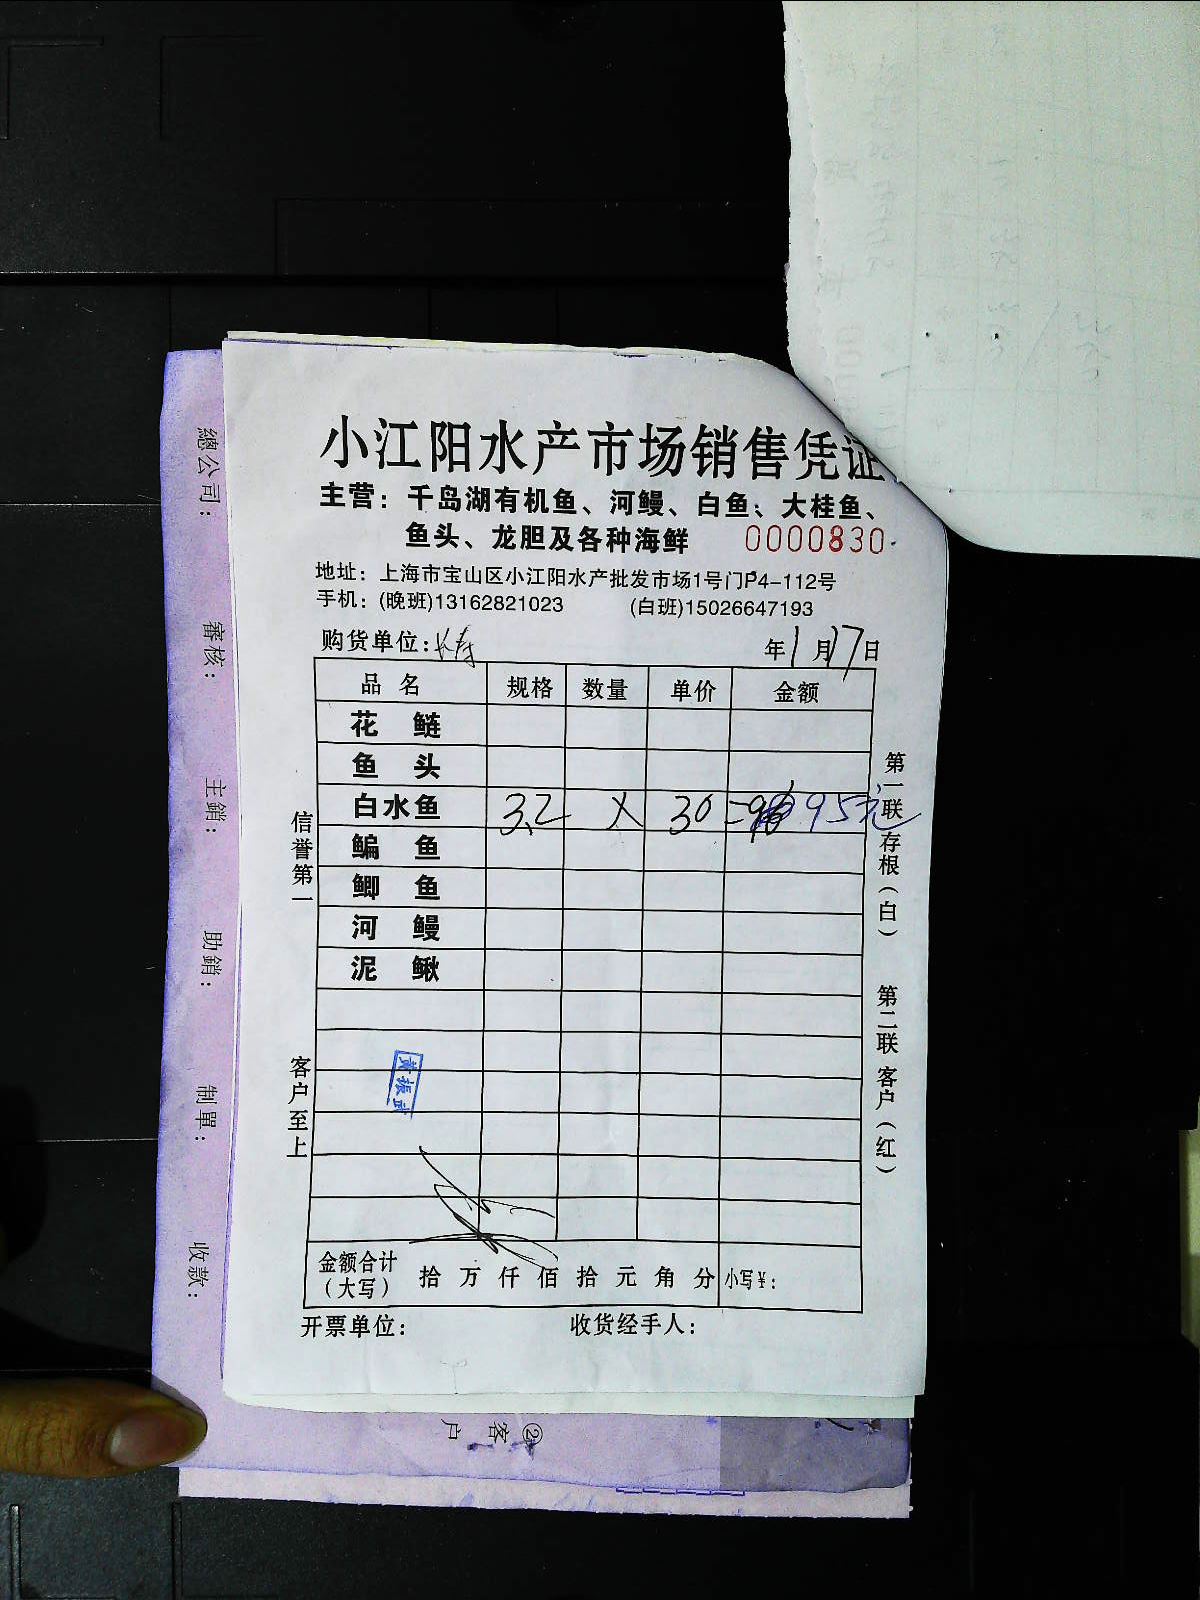 小江阳水产市场销售凭证
主营：千岛湖有机鱼、河鳗、白鱼、大桂鱼、
鱼头、龙胆及各种海鲜 0000830
地址：上海市宝山区小江阳水产批发市场1号门P4-112号
手机：(晚班)13162821023 (白班)15026647193
购货单位：长寿 年1月17日
品名 规格 数量 单价 金额
花鲢
鱼头
白水鱼 3.2 × 30 = 96 95元
鳊鱼
鲫鱼
河鳗
泥鳅
金额合计（大写） 拾 万 仟 佰 拾 元 角 分 小写¥：
开票单位： 收货经手人：
信誉第一
客户至上
第一联 存根（白）
第二联 客户（红）
黄振
總公司：
審核：
主銷：
助銷：
制單：
收款：
②客户